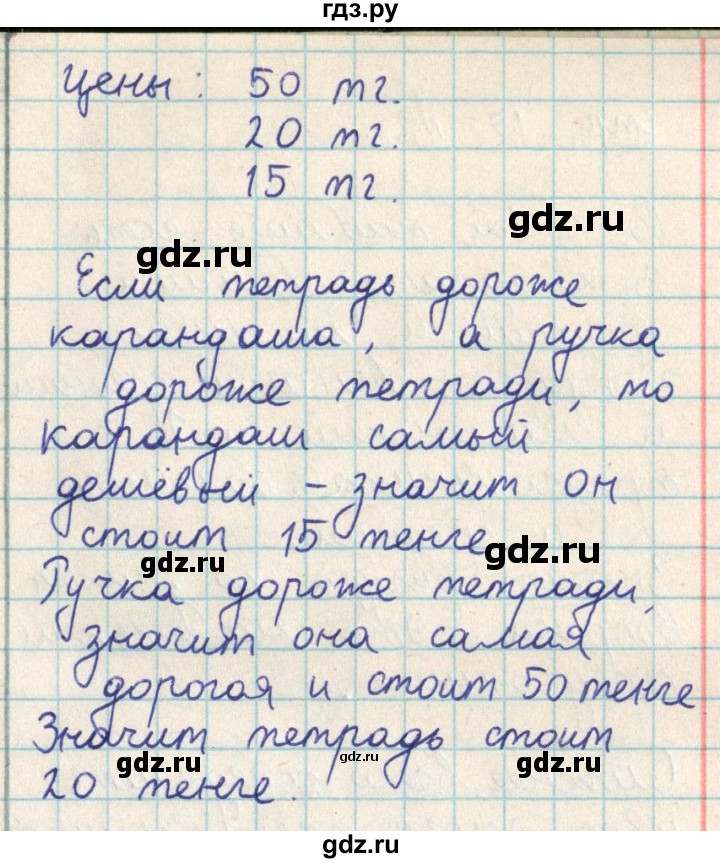 гдз.ру
Цены: 50 тг.
20 тг.
15 тг.
gdz.ru
gdz.ru
Если тетрадь дороже
карандаша, а ручка
дороже тетради, то
карандаш самый
дешёвый – значит он
стоит 15 тенге
gdz.ru
gdz.ru
Ручка дороже тетради,
значит она самая
дорогая и стоит 50 тенге
Значит тетрадь стоит
gdz.ru
gdz.ru
gdz.ru
20 тенге.
gdz.ru